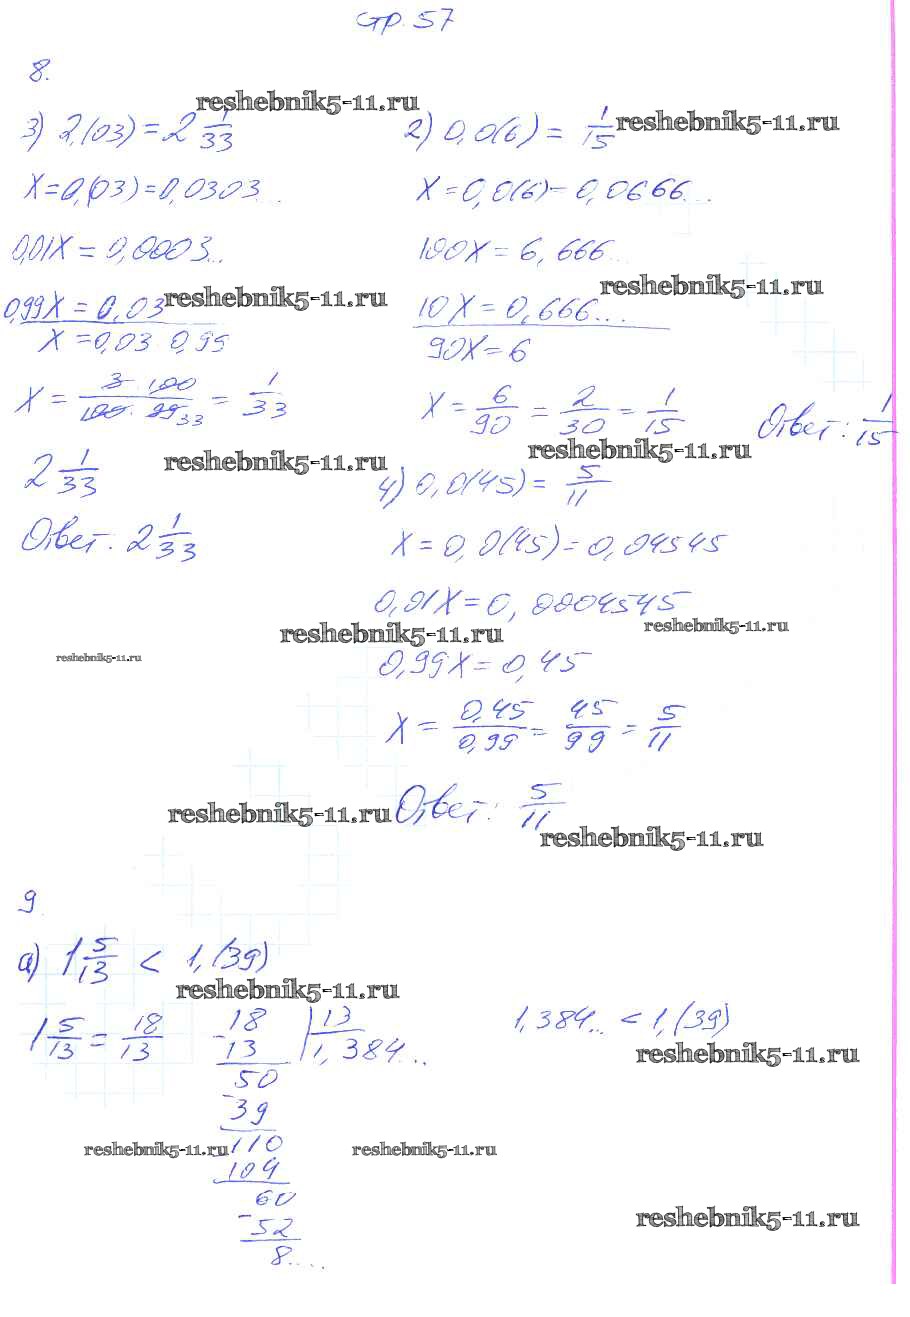 стр. 57
8.
reshebnik5-11.ru
3) 2,(03) = 2 1/33
x = 0,(03) = 0,0303...
0,01x = 0,0003...
0,99x = 0,03
reshebnik5-11.ru
x = 0,03 0,99
x = 3 100 / 100 · 99 33 = 1/33
2 1/33
reshebnik5-11.ru
Ответ: 2 1/33
2) 0,0(6) = 1/15
reshebnik5-11.ru
x = 0,0(6) = 0,0666...
100x = 6,666...
reshebnik5-11.ru
10x = 0,666...
90x = 6
x = 6/90 = 2/30 = 1/15
Ответ: 1/15
reshebnik5-11.ru
4) 0,0(45) = 5/11
x = 0,0(45) = 0,04545
0,01x = 0,0004545
reshebnik5-11.ru
reshebnik5-11.ru
reshebnik5-11.ru
0,99x = 0,45
x = 0,45/0,99 = 45/99 = 5/11
reshebnik5-11.ru
Ответ: 5/11
reshebnik5-11.ru
9
а) 1 5/13 < 1,(39)
reshebnik5-11.ru
1 5/13 = 18/13
18 | 13
-13 | 1,384...
50
-39
110
104
60
-52
8....
1,384.. < 1,(39)
reshebnik5-11.ru
reshebnik5-11.ru
reshebnik5-11.ru
reshebnik5-11.ru